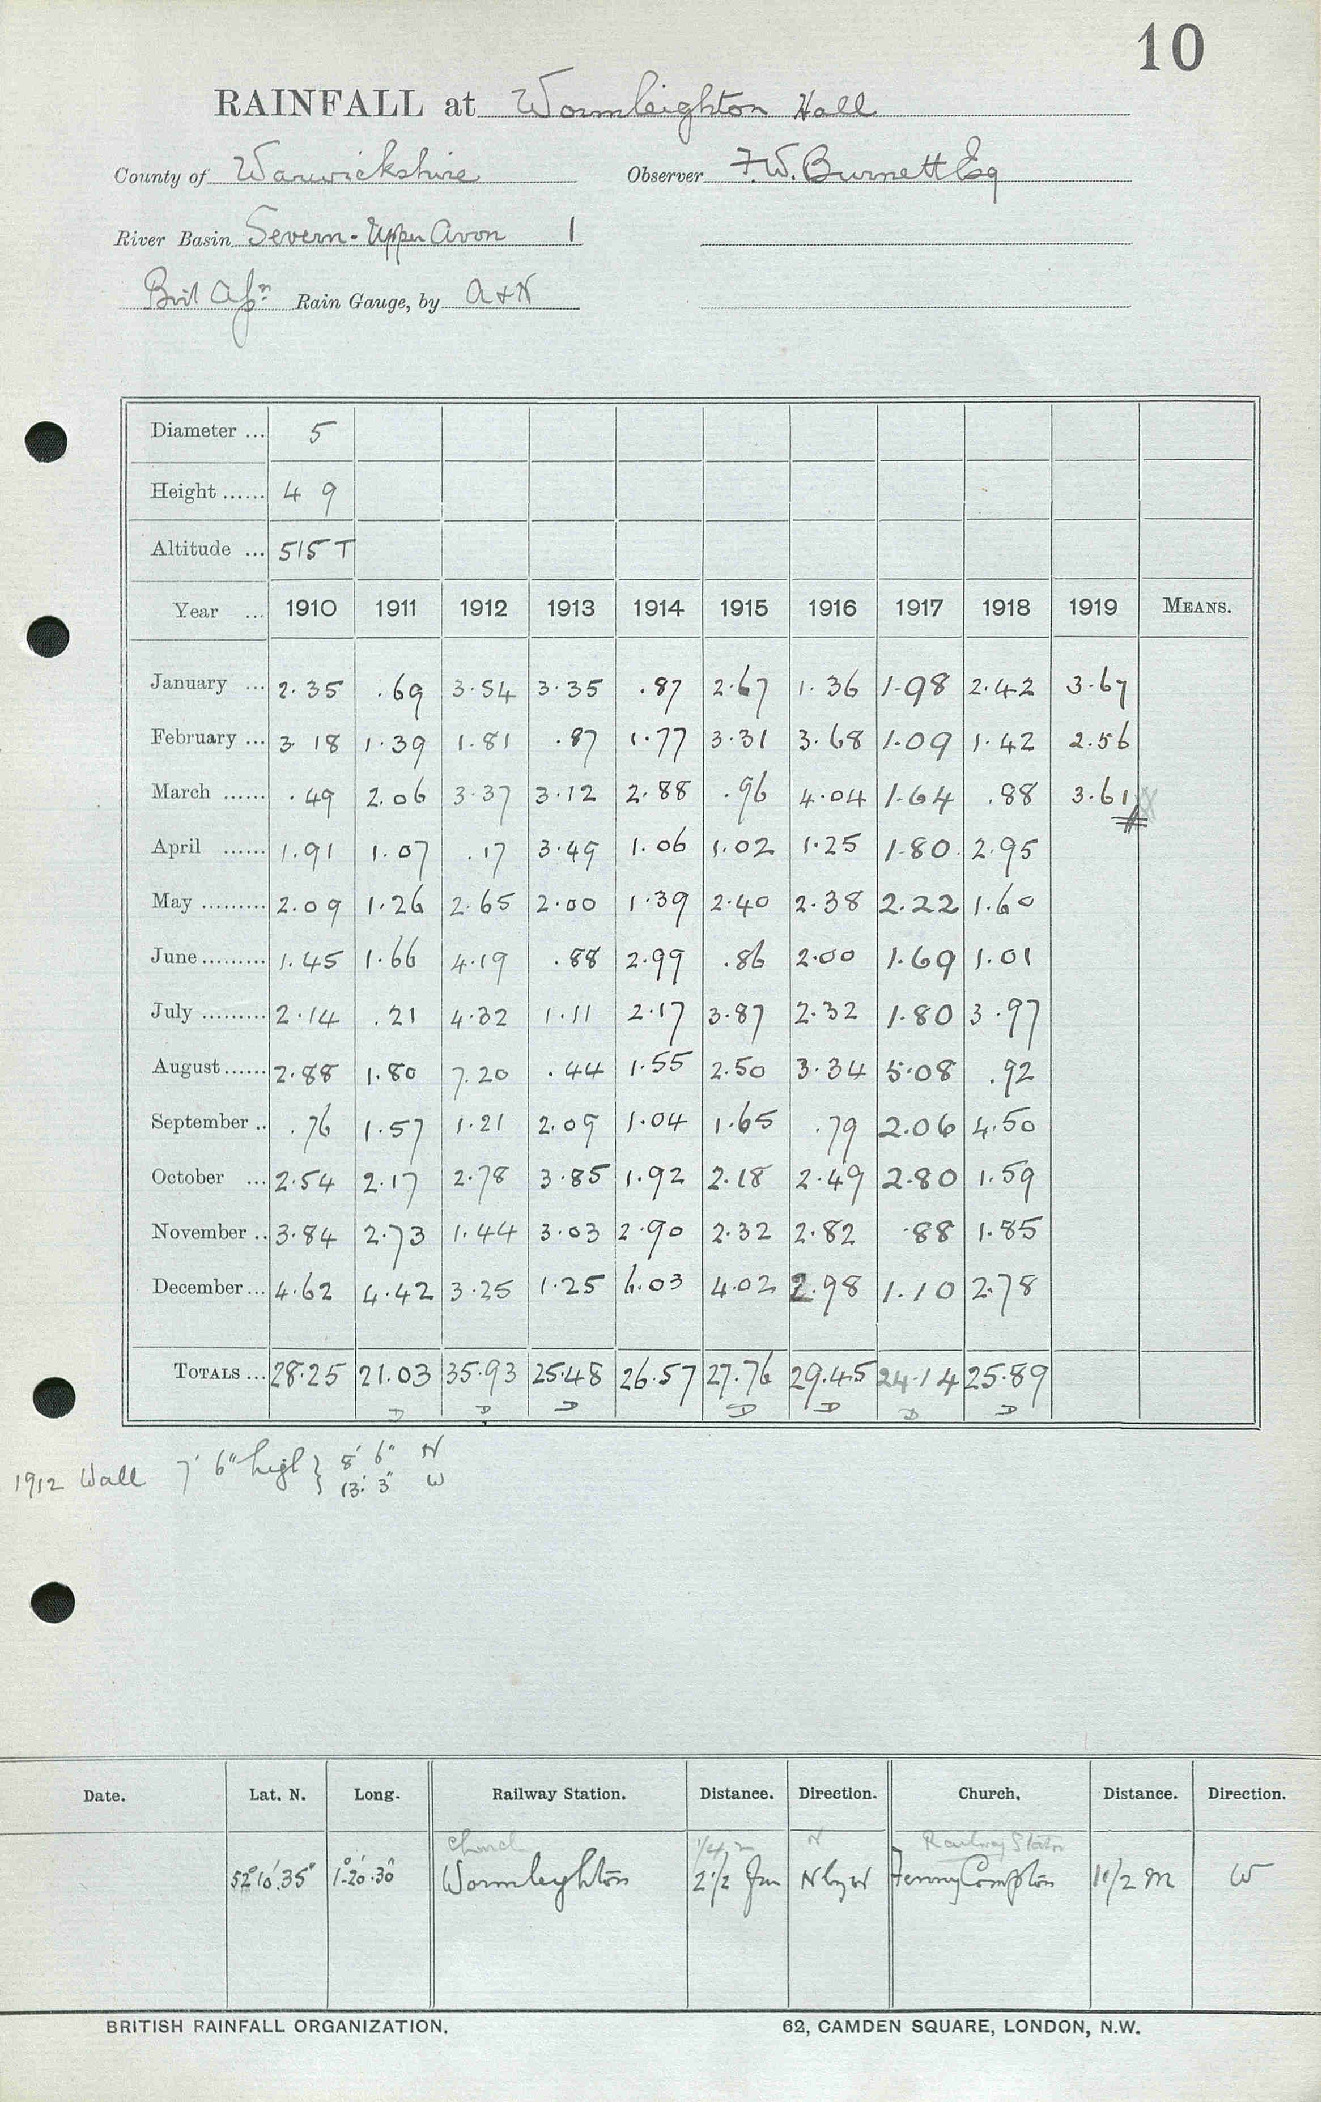 10
RAINFALL at Wormleighton Hall
County of Warwickshire Observer F.W. Burnett Esq
River Basin Severn - Upper Avon 1
Brit Assn Rain Gauge, by A & N
Diameter ... 5
Height ...... 4 9
Altitude ... 515 T
Year ... 1910 1911 1912 1913 1914 1915 1916 1917 1918 1919 MEANS.
January ... 2.35 .69 3.54 3.35 .87 2.67 1.36 1.98 2.42 3.67
February ... 3 18 1.39 1.81 .87 1.77 3.31 3.68 1.09 1.42 2.56
March ...... .49 2.06 3.37 3.12 2.88 .96 4.04 1.64 .88 3.61
April ...... 1.91 1.07 .17 3.49 1.06 1.02 1.25 1.80 2.95
May ......... 2.09 1.26 2.65 2.00 1.39 2.40 2.38 2.22 1.60
June ......... 1.45 1.66 4.19 .88 2.99 .86 2.00 1.69 1.01
July ......... 2.14 .21 4.32 1.11 2.17 3.87 2.32 1.80 3.97
August ...... 2.88 1.80 7.20 .44 1.55 2.50 3.34 5.08 .92
September .. .76 1.57 1.21 2.09 1.04 1.65 .79 2.06 4.50
October ... 2.54 2.17 2.78 3.85 1.92 2.18 2.49 2.80 1.59
November .. 3.84 2.73 1.44 3.03 2.90 2.32 2.82 .88 1.85
December ... 4.62 4.42 3.25 1.25 6.03 4.02 2.98 1.10 2.78
TOTALS ... 28.25 21.03 35.93 25.48 26.57 27.76 29.45 24.14 25.89
D D D D D D D
1912 Wall 7' 6" high } 8' 6" N
13' 3" W
Date. Lat. N. Long. Railway Station. Distance. Direction. Church. Distance. Direction.
Church N Railway Station
52° 10' 35" 1° 20' 30" Wormleighton 2 1/2 Fur N by W Fenny Compton 1 1/2 M W
BRITISH RAINFALL ORGANIZATION. 62, CAMDEN SQUARE, LONDON, N.W.